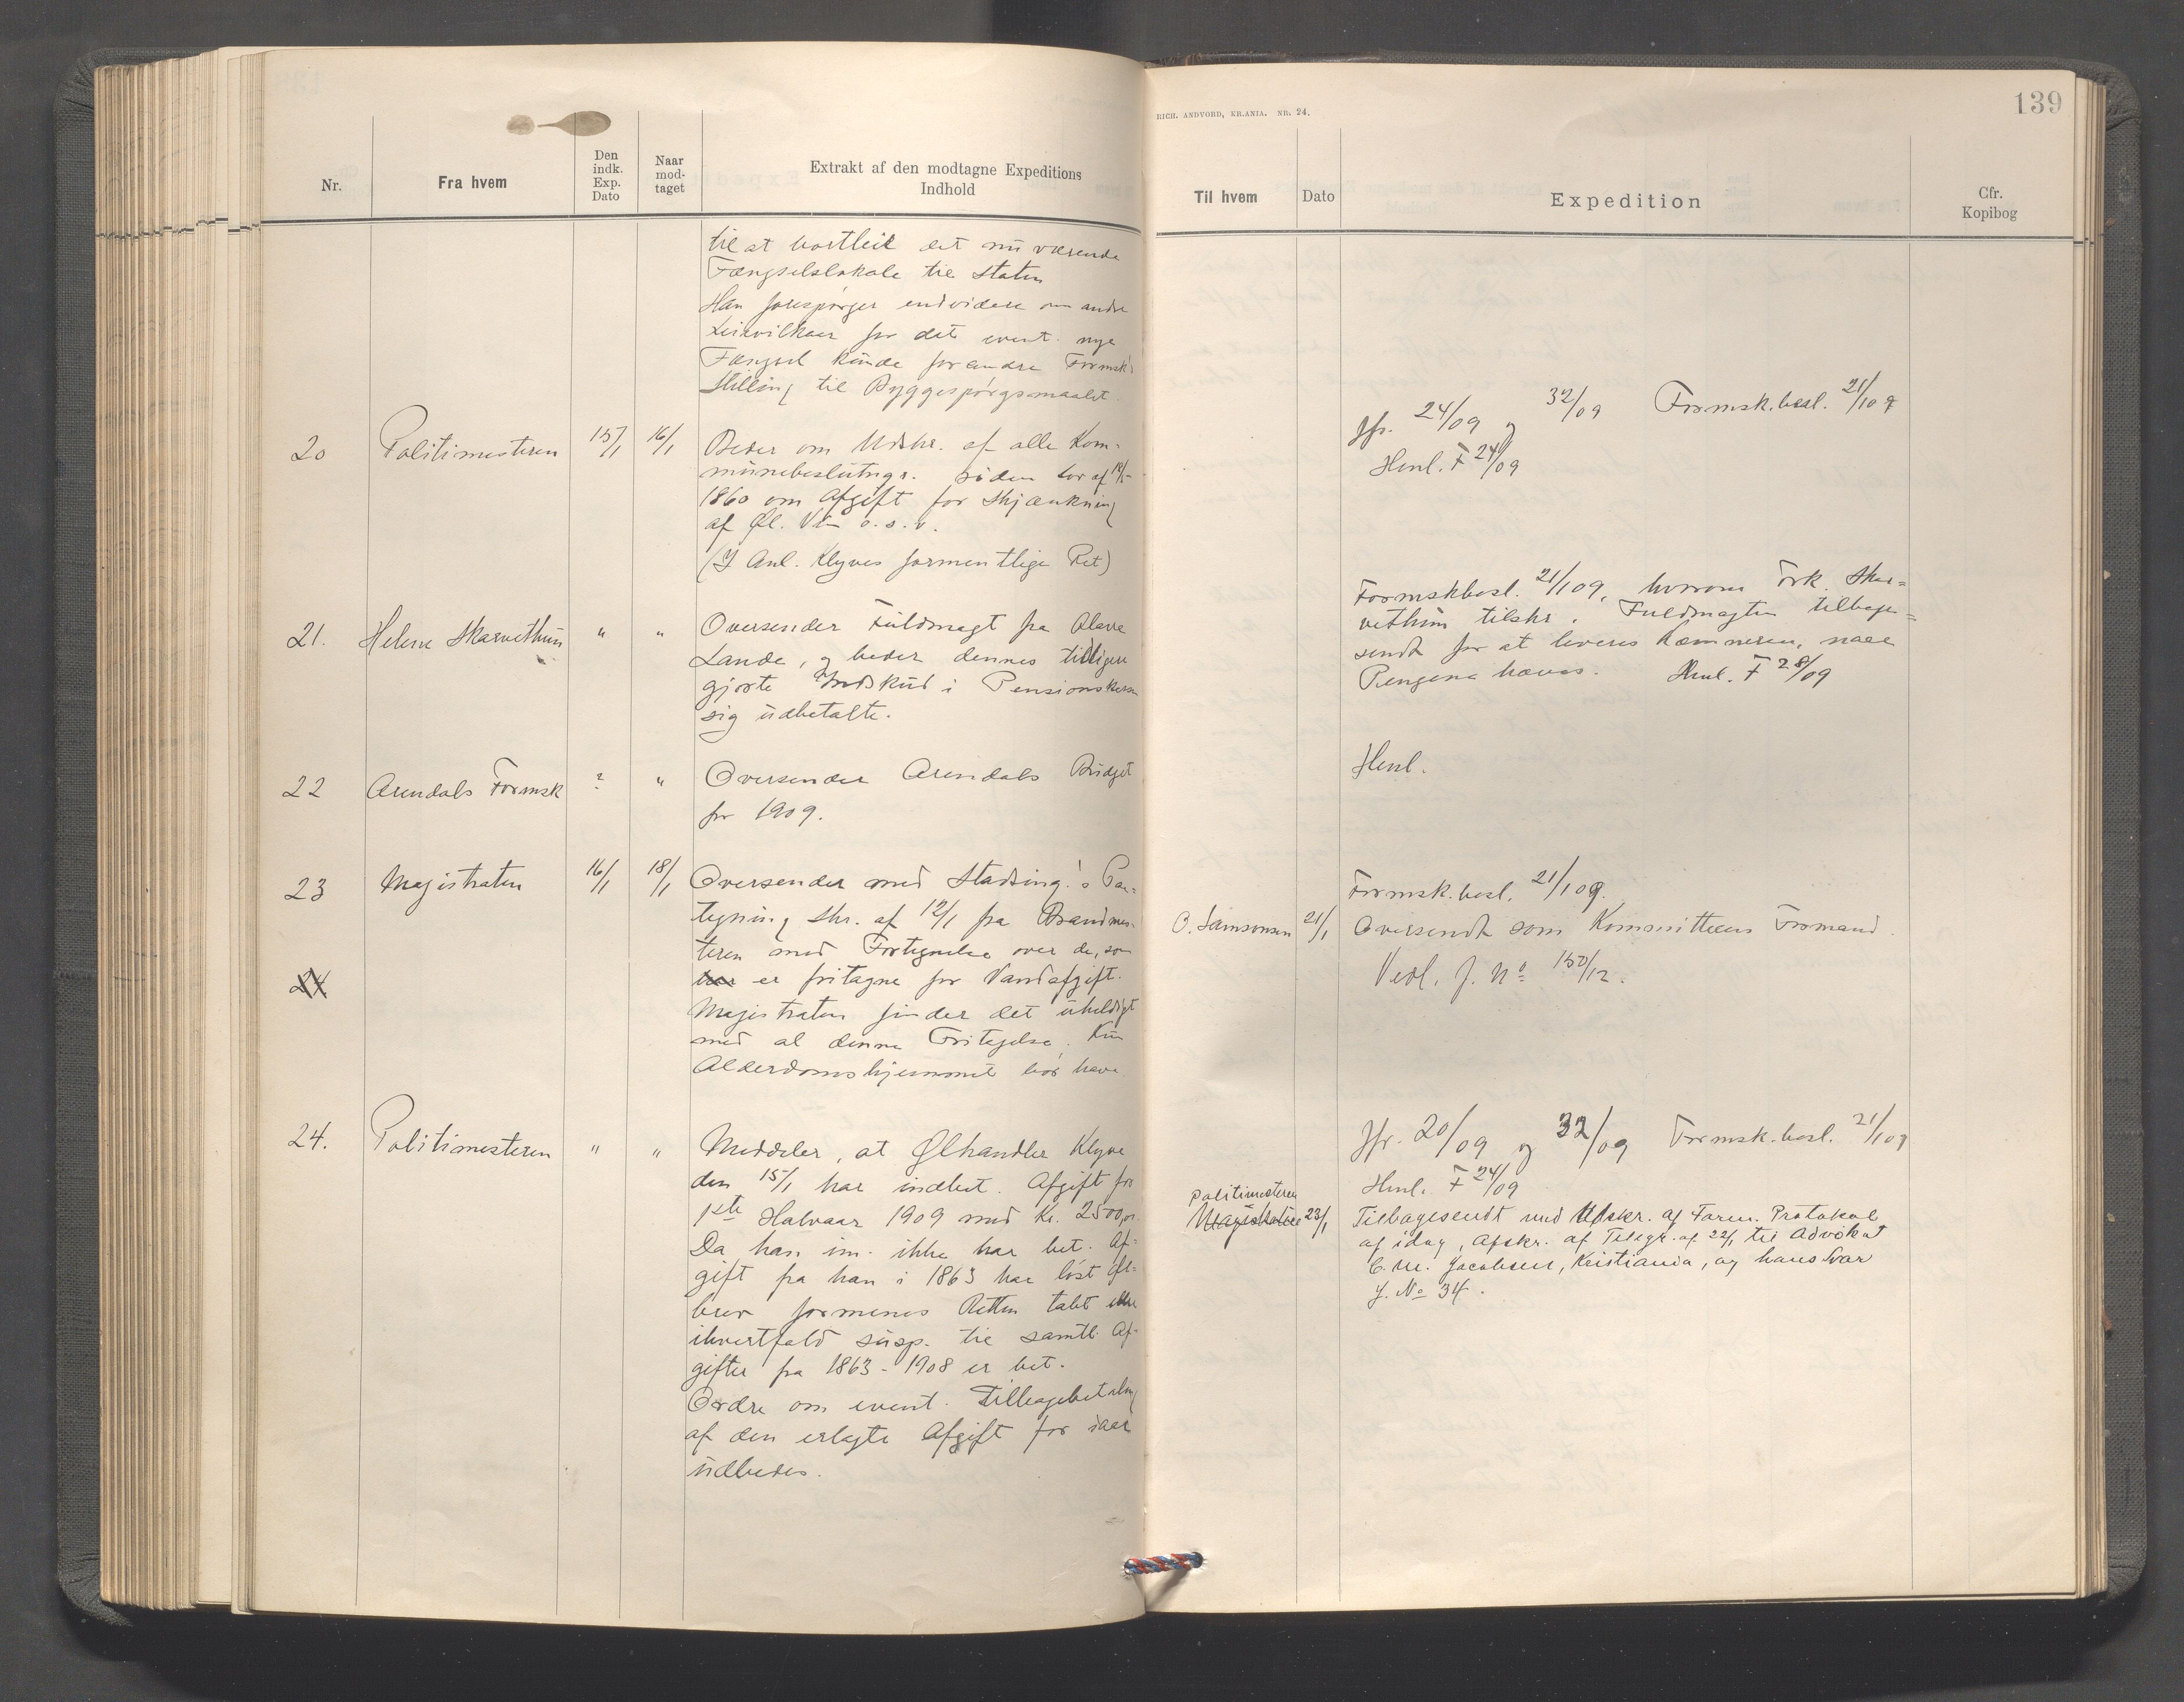 Nr.
Fra hvem
Den
indk.
Exp.
Dato
Naar
mod-
taget
Extrakt af den modtagne Expeditions
Indhold
til at bortleie det nu værende
Fængselslokale til Staten
Han forespørger endvidere om andre
Leievilkaar for det event. nye
Fængsel kunde forandre Formsk's
Stilling til Byggespørgsmaalet.
20
Politimesteren
15/1
16/1
Beder om Udskr. af alle Kom-
munebeslutngr. siden Lov af
1860 om Afgift for Skjænkning
af Øl. Vin o.s.v.
(I Anl. Klyves formentlige Ret)
21.
Helene Skarvethun
"
"
Oversender Fuldmagt fra Olava
Lande, og beder dennes tidligere
gjorte Indskud i Pensionskassen
sig udbetalte.
22
Arendals Formsk
?
"
Oversender Arendals Budget
for 1909.
23
Magistraten
16/1
18/1
Oversender med Stadsing.'s Paa-
tegning Skr. af 12/1 fra Brandmes-
teren med Fortegnelse over de, som
er fritagne for Vandafgift.
24
Magistraten finder det uheldigt
med al denne Fritagelse. Kun
Alderdomshjemmet bør have
24.
Politimesteren
"
"
Meddeler, at Ølhandler Klyve
den 15/1 har indbet. Afgift for
1ste Halvaar 1909 med Kr. 2500,00
Da han im. ikke har bet. Af-
gift fra han i 1863 har løst Øl-
brev formenes Retten tabt
ihvertfald susp. til samtl. Af-
gifter fra 1863-1908 er bet.
Ordre om event. Tilbagebetaling
af den erlagte Afgift for iaar
udbedes.
RICH. ANDVORD, KR.ANIA. NR. 24.
139
Til hvem
Dato
Expedition
Cfr.
Kopibog
Jfr. 24/09 og 32/09 Formsk.besl. 21/1 09
Henl. F 24/09
Formskbesl. 21/1 09, hvorom Frk. Skar-
vethun tilskr. Fuldmagten tilbage-
sendt for at leveres Kæmneren, naar
Pengene hæves. Henl. F 28/09
Henl.
Formsk.besl. 21/1 09.
O. Samsonsen
21/1
Oversendt som Kommitteens Formand.
Vedl. J. No 150/12.
Jfr. 20/09 og 32/09 Formsk.besl. 21/1 09
Henl. F 24/09
Politimesteren
Magistraten
23/1
Tilbagesendt med Udskr. af Form. Protokol
af idag, Afskr. af Telegr. af 22/1 til Advokat
C. M. Jacobsen, Kristiania, og hans Svar
J. No 34.